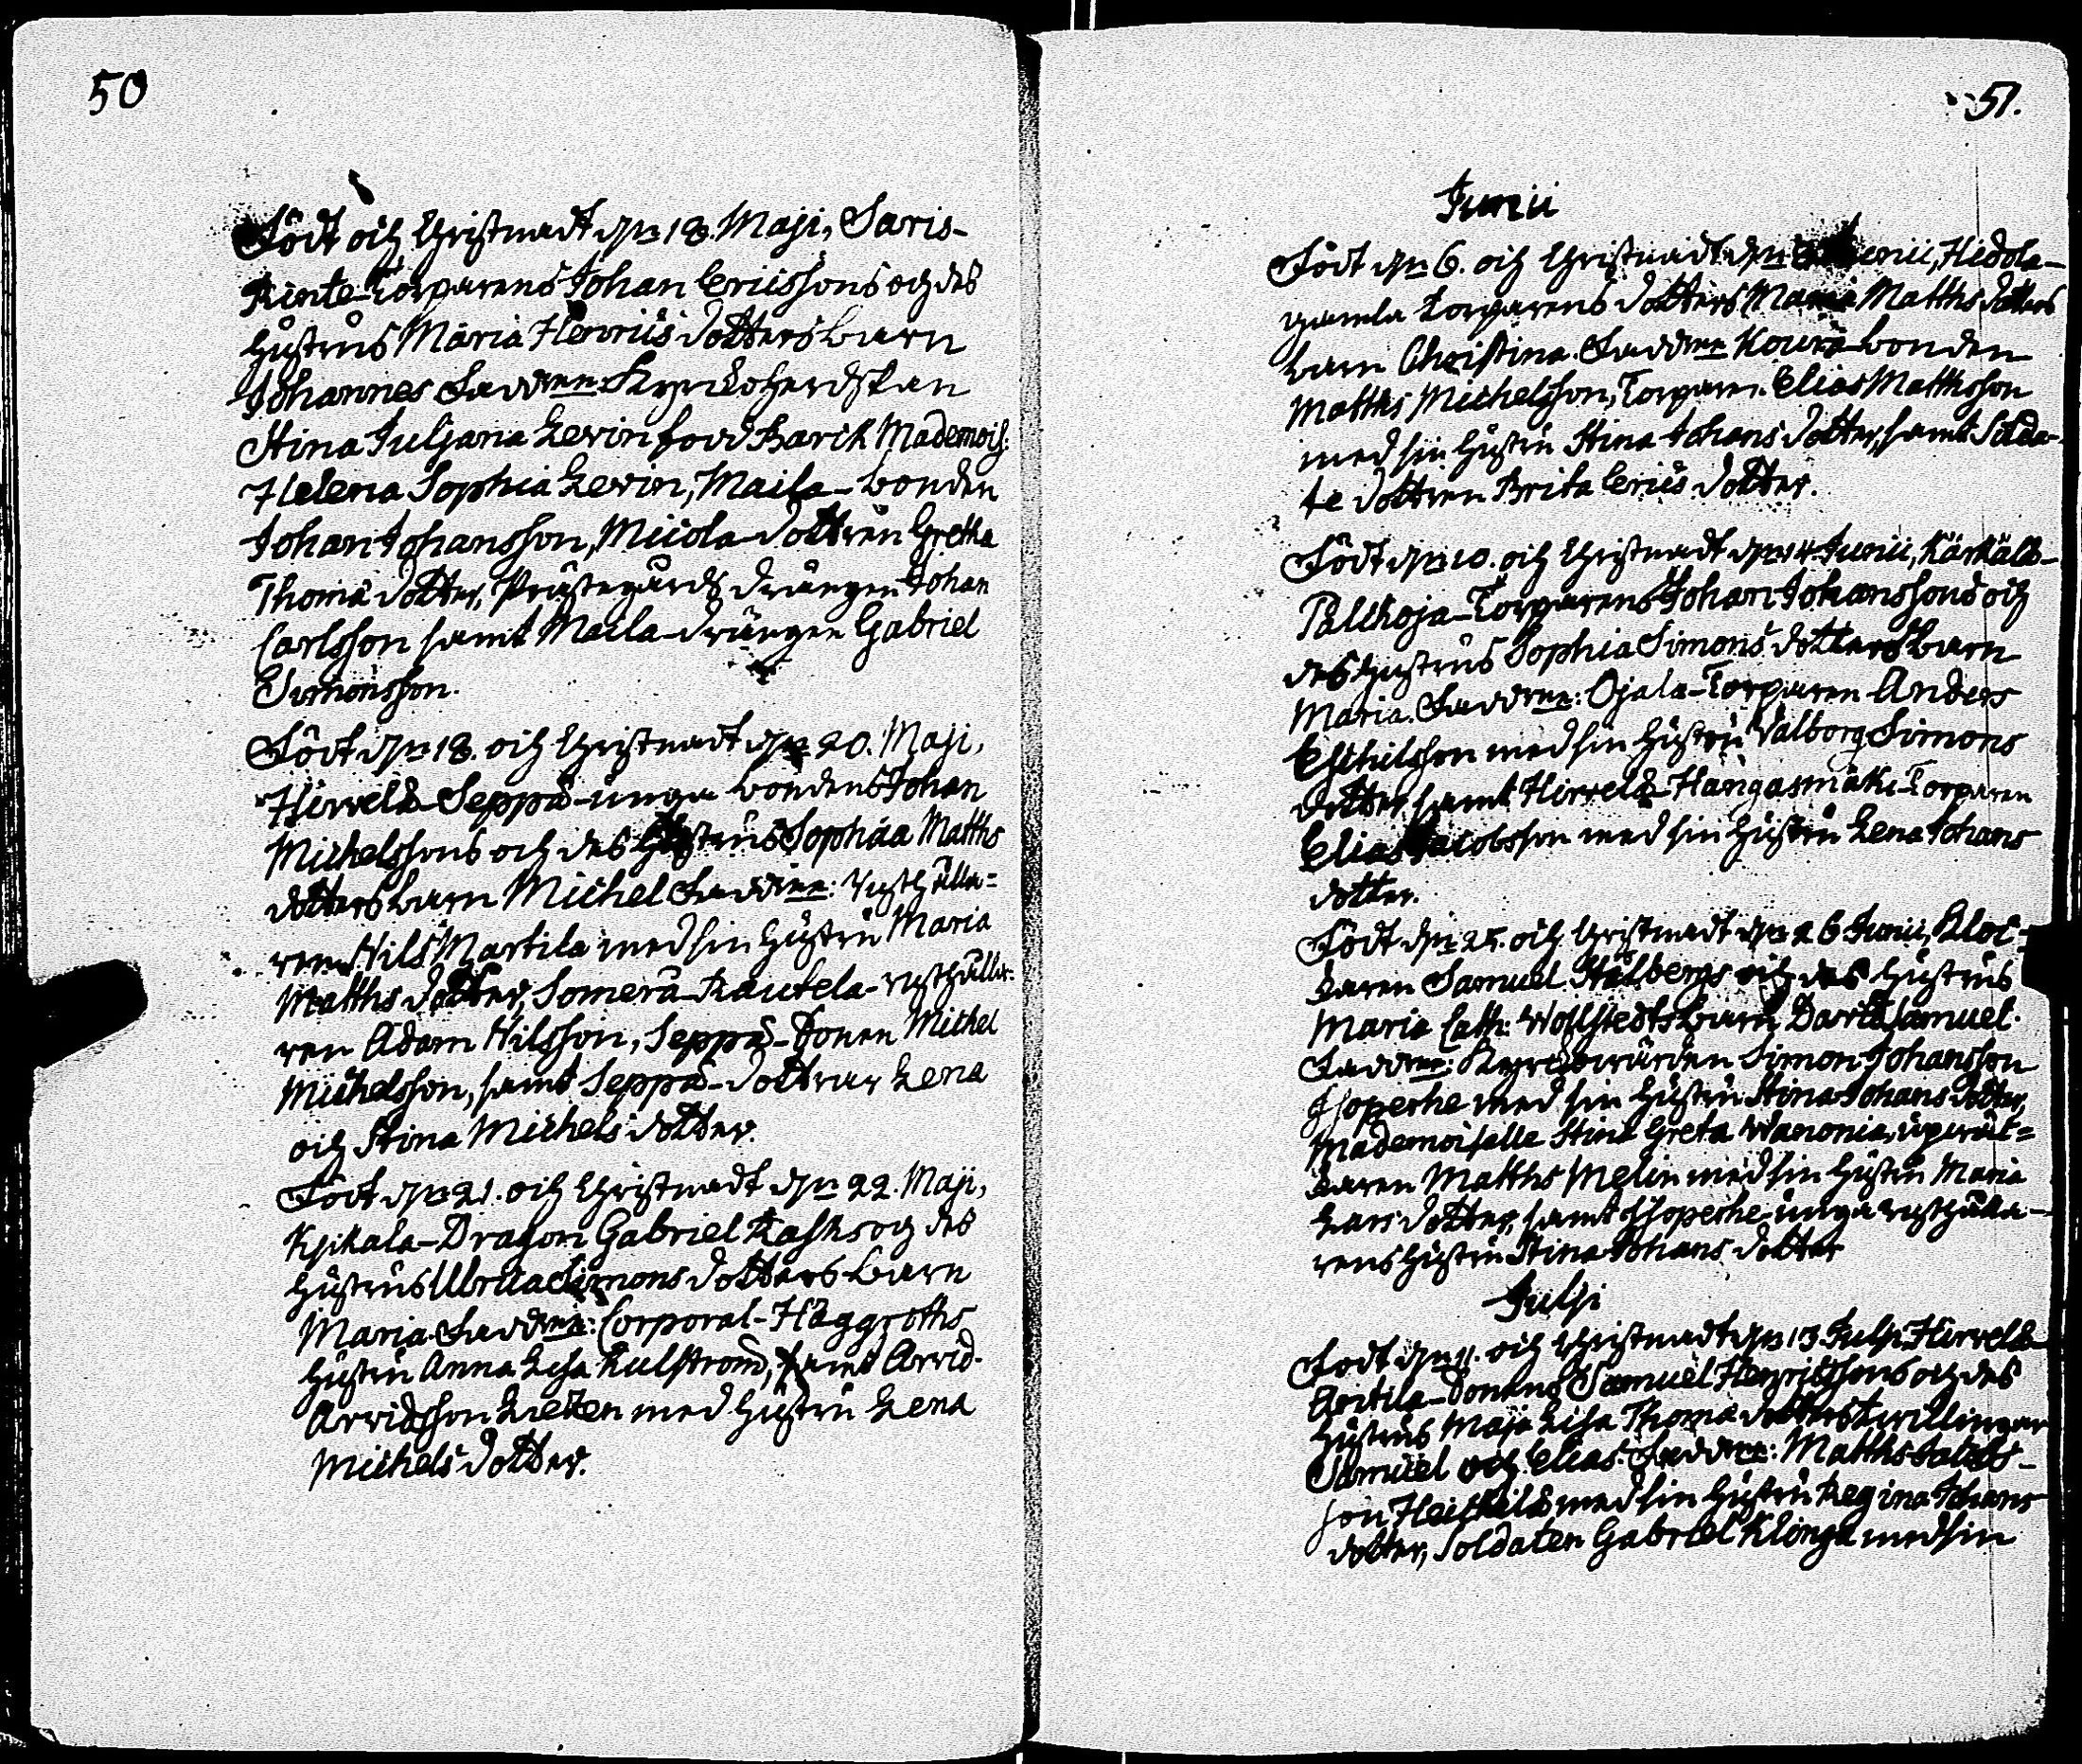 50
Födt och Christnadt den 18. Maji, Saris-
Rinte-Torparens Johan Ericssons och des
hustrus Maria Henrics dotters barn
Johannes Faddrar: Kyrckoherdskan
Stina Juljana Levin född Barck Mademois:
Helena Sophia Levin, Maila-bonden
Johan Johansson, Micola-dottren Gretha
Thomæ dotter, Prästegårds drängen Johan
Carlsson samt Maila-drängen Gabriel
Simonsson.
Födt den 18. och Christnadt den 20. Maji,
Hirvelä-Seppä-unga bondens Johan
Michelssons och des hustrus Sophia Matths
dotters barn Michel Faddrar: Rusthålla-
ren Nils Martila med sin hustru Maria
Matths dotter, Somerå-Rautela-rusthålla-
ren Adam Nilsson, Seppä-Sonen Michel
Michelsson, samt Seppä-döttrar Lena
och Stina Michels dotter.
Födt den 21. och Christnadt den 22. Maji,
Kyikala-Dragon Gabriel Rasks och des
hustrus Ulrica Simons dotters barn
Maria. Faddrar: Corporal-Häggroths
hustru Anna Lisa Kulström, samt Arvid
Arvidsson Lieten med hustru Lena
Michels dotter.
51.
Junii
Födt den 6. och Christnadt den Junii, Hidola-
gamla Torparens dotters Maria Matths dotters
barn Christina. Faddrar Kouva-bonden
Matths Michelsson, Torparen Elias Matthsson
med sin hustru Stina Johans dotter, samt Solda-
te dottren Brita Erics dotter.
Födt den 10. och Christnadt den 14 Junii, Kärkälä-
Pallkoja-Torparens Johan Johanssons och
des hustrus Sophia Simons dotters barn
Maria. Faddrar: Ojala-Torparen Anders
Eschilsson med sin hustru Valborg Simons
dotter, samt Hirvelä-Hangasmäki-Torparen
Elias Jacobsson med sin hustru Lena Johans
dotter.
Födt den 25. och Christnadt den 26 Junii, Kloc-
karen Samuel Stålbergs och des hustrus
Maria Cath: Wollstedts barn David Samuel.
Faddrar: Kyrckovärden Simon Johansson
Isoperhe med sin hustru Stina Johans dotter,
Mademoiselle Stina Greta Wanonia, uprät-
karen Matths Melin med sin hustru Maria
Lars dotter, samt Isoperhe-unga rusthålla-
rens hustru Stina Johans dotter
Julji
Födt den 11. och Christnadt den 13 Julji Hirvelä
Anttila-Sonens Samuel Henricssons och des
hustrus Maja Lisa Thomæ dotters twillingar
Samuel och Elias. Faddrar: Matths Jacobs-
son Heickilä med sin hustru Regina Johans
dotter, Soldaten Gabriel Klinga med sin